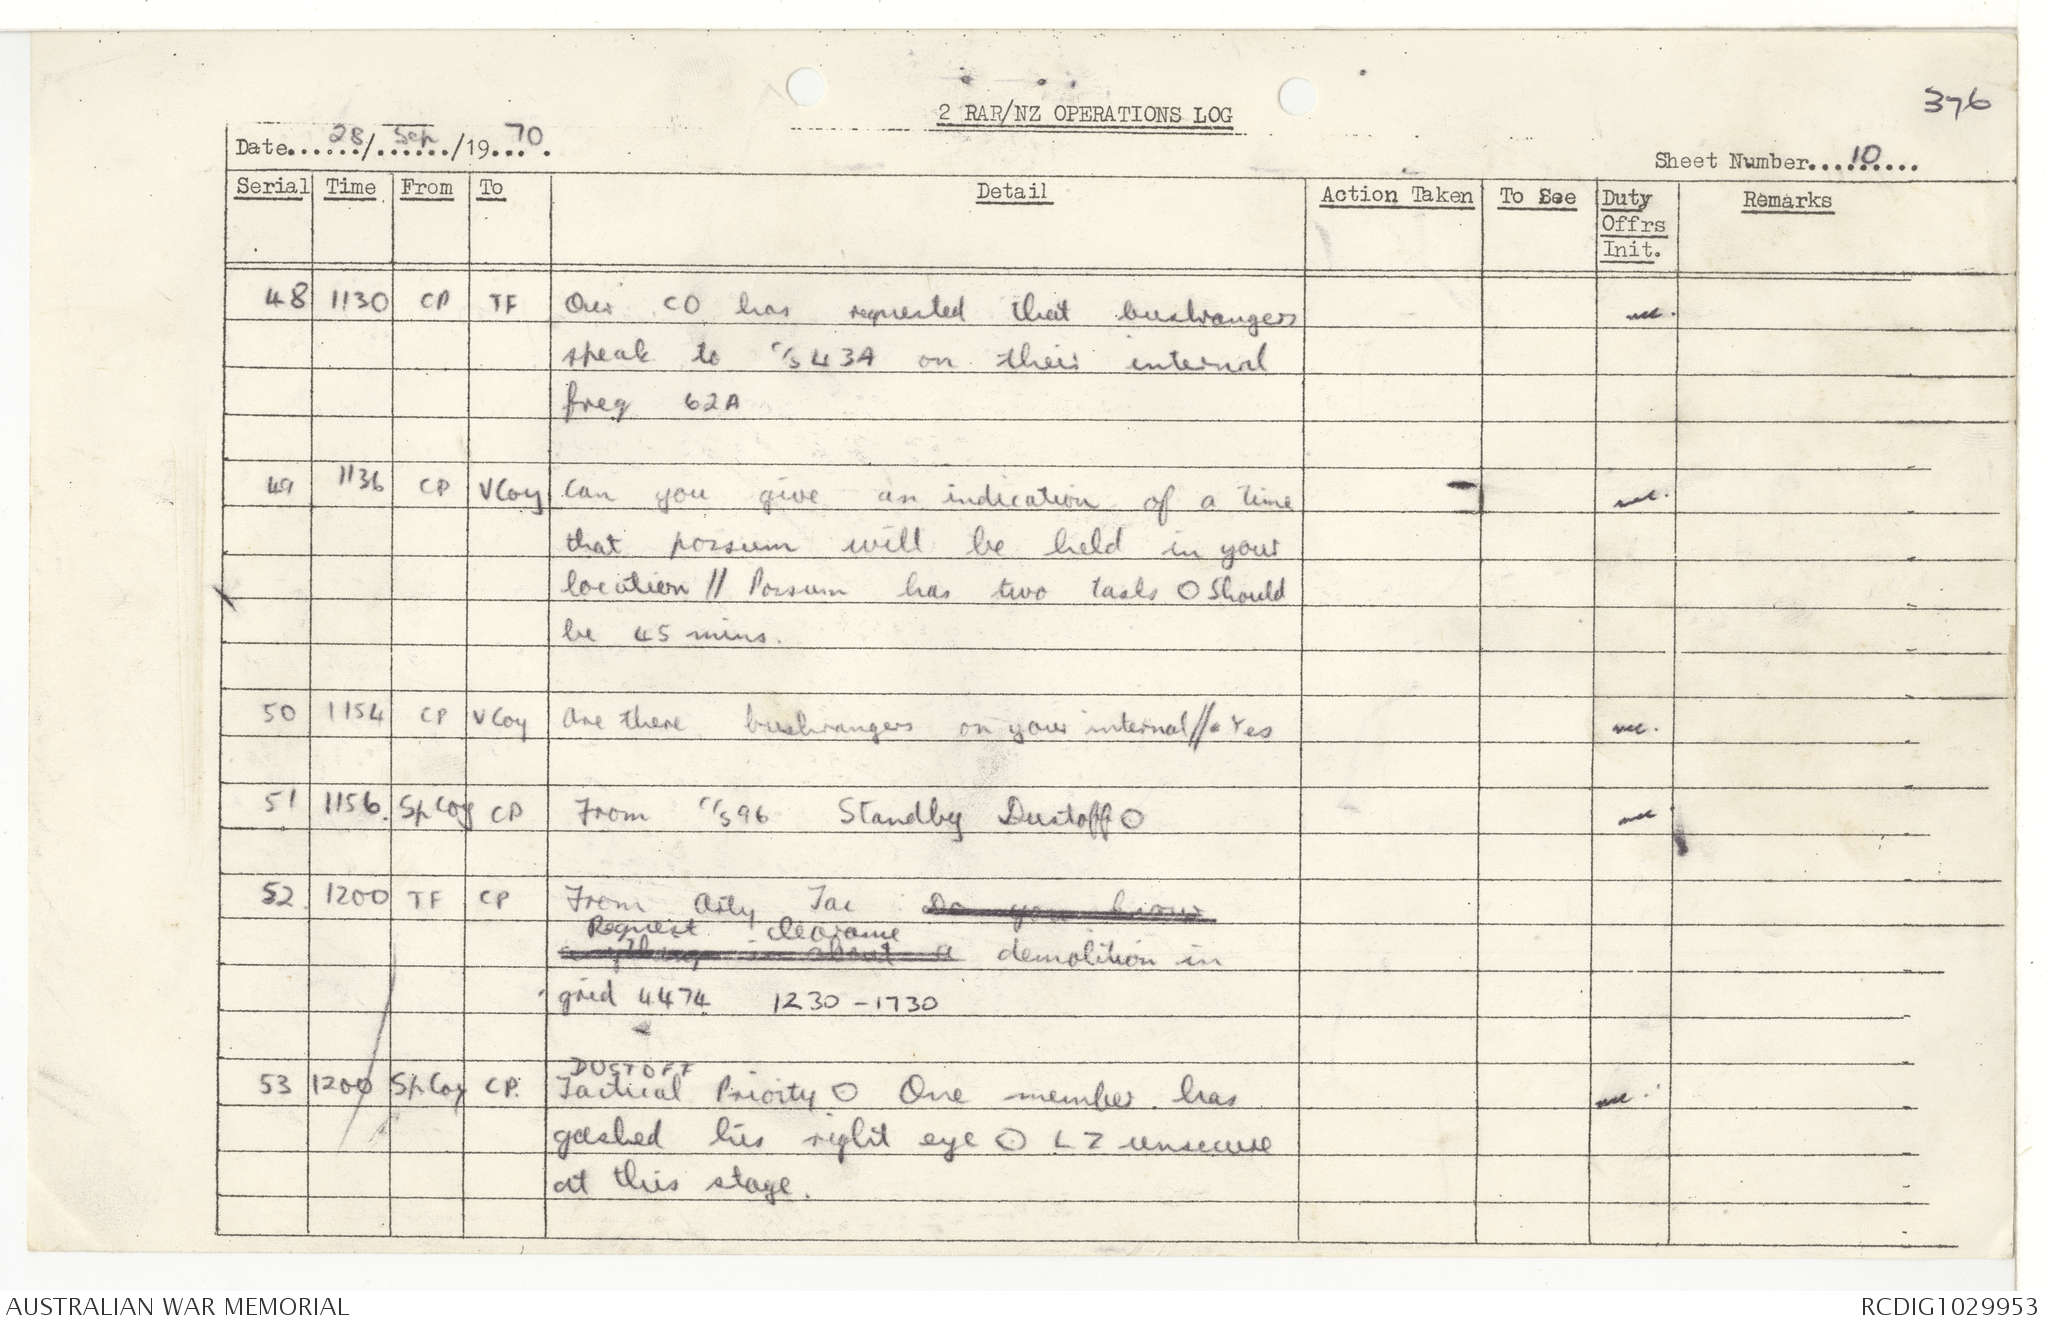 376
2 RAR/NZ OPERATIONS LOG
Date......28/...Sep.../19...70.
Sheet Number....10......
Serial Time From To Detail Action Taken To See Duty Offrs Init. Remarks
48 1130 CP TF Our CO has requested that bushrangers
speak to C/S 43A on their internal
freq 62A
49 1136 CP V Coy Can you give an indication of a time
that possum will be held in your
location // Possum has two tasks O Should
be 45 mins.
50 1154 CP V Coy Are there bushrangers on your internal // Yes
51 1156. Sp Coy CP From C/S 96 Standby Dustoff O
52. 1200 TF CP From Arty Tac Do you know
Request clearance
anything about a demolition in
grid 4474 1230 - 1730
DUSTOFF
53 1200 Sp Coy CP. Tactical Priority O One member has
gashed his right eye O LZ unsecure
at this stage.
AUSTRALIAN WAR MEMORIAL
RCDIG1029953